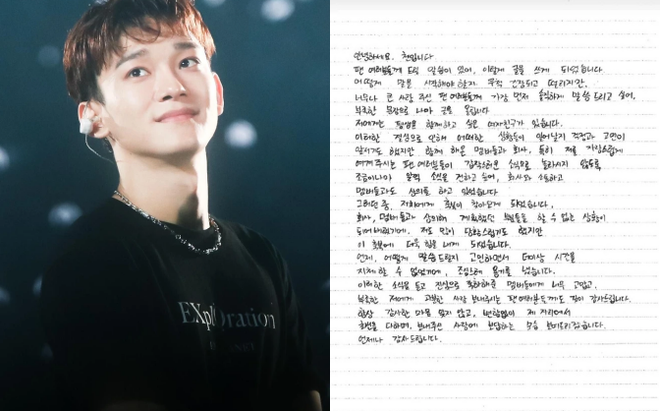 안녕하세요. 첸입니다
팬 여러분들께 드릴 말씀이 있어, 이렇게 글을 쓰게 되었습니다.
어떻게 말을 시작해야 할지, 무척 긴장되고 떨리지만,
너무나 큰 사랑 주신 팬 여러분들께 가장 먼저 솔직하게 말씀 드리고 싶어,
부족한 문장으로 나마 글을 올립니다
저에게는 평생을 함께하고 싶은 여자친구가 있습니다.
이러한 결심으로 인해 어떠한 상황들이 일어날지 걱정과 고민이
앞서기도 했지만 함께 해온 멤버들과 회사, 특히 저를 자랑스럽게
여겨주시는 팬 여러분들이 갑작스러운 소식으로 놀라시지 않도록
조금이나마 일찍 소식을 전하고 싶어, 회사와 소통하고
멤버들과도 상의를 하고 있었습니다
그러던 중, 저희에게 축복이 찾아오게 되었습니다.
회사, 멤버들과 상의해 계획했던 부분들을 할 수 없는 상황이
되어버렸기에, 저도 많이 당황스럽기도 했지만
이 축복에 더욱 힘을 내게 되었습니다.
언제, 어떻게 말씀드릴지 고민하면서 더이상 시간을
지체 할 수 없었기에, 조심스레 용기를 냈습니다.
이러한 소식을 듣고 진심으로 축하해준 멤버들에게 너무 고맙고,
부족한 저에게 과분한 사랑 보내주시는 팬 여러분들께도 깊이 감사드립니다.
항상 감사한 마음 잊지 않고, 변함없이 제 자리에서
최선을 다하며, 보내주신 사랑에 보답하는 모습 보여드리겠습니다.
언제나 감사드립니다.
EXplOration